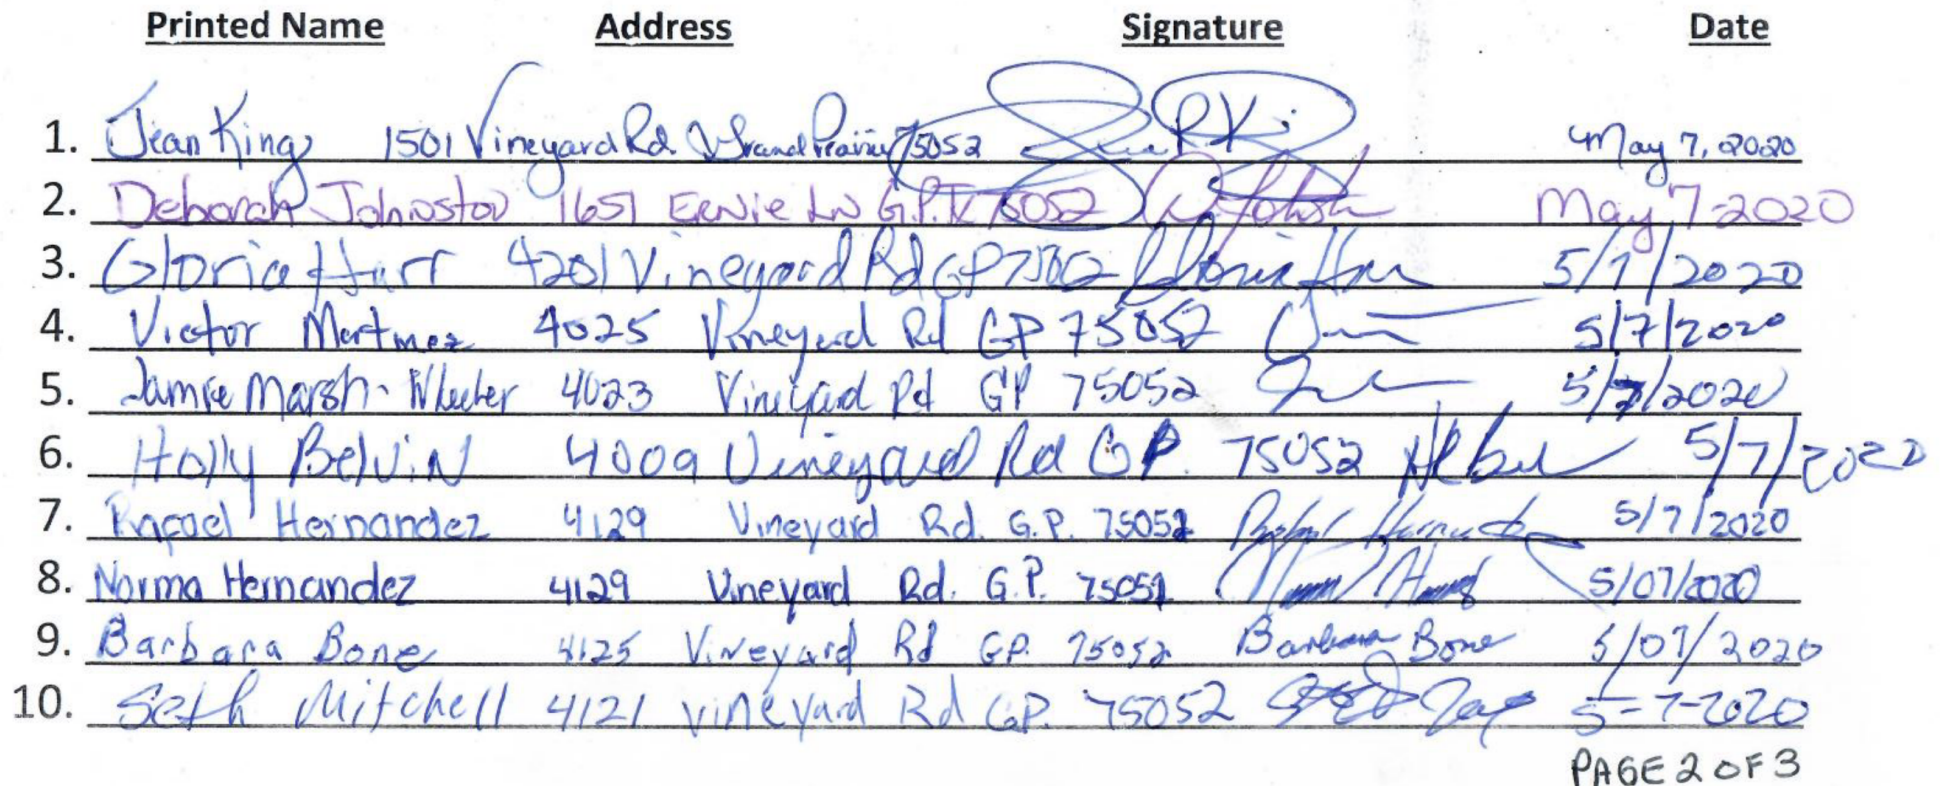 Printed Name Address Signature Date
1. Jean King 1501 Vineyard Rd. Grand Prairie 75052 May 7, 2020
2. Deborah Johnston 1651 Ernie Ln G.P. TX 75052 D. Johnston May 7-2020
3. Gloria Harr 4201 Vineyard Rd GP 75052 Gloria Harr 5/7/2020
4. Victor Martinez 4025 Vineyard Rd GP 75052 5/7/2020
5. Jamie Marsh-Wheeler 4023 Vineyard Rd GP 75052 5/7/2020
6. Holly Belvin 4009 Vineyard Rd GP. 75052 5/7/2020
7. Rafael Hernandez 4129 Vineyard Rd. G.P. 75052 Rafael Hernandez 5/7/2020
8. Norma Hernandez 4129 Vineyard Rd. G.P. 75052 5/07/2020
9. Barbara Bone 4125 Vineyard Rd GP. 75052 Barbara Bone 5/07/2020
10. Seth Mitchell 4121 vineyard Rd GP. 75052 5-7-2020
PAGE 2 OF 3